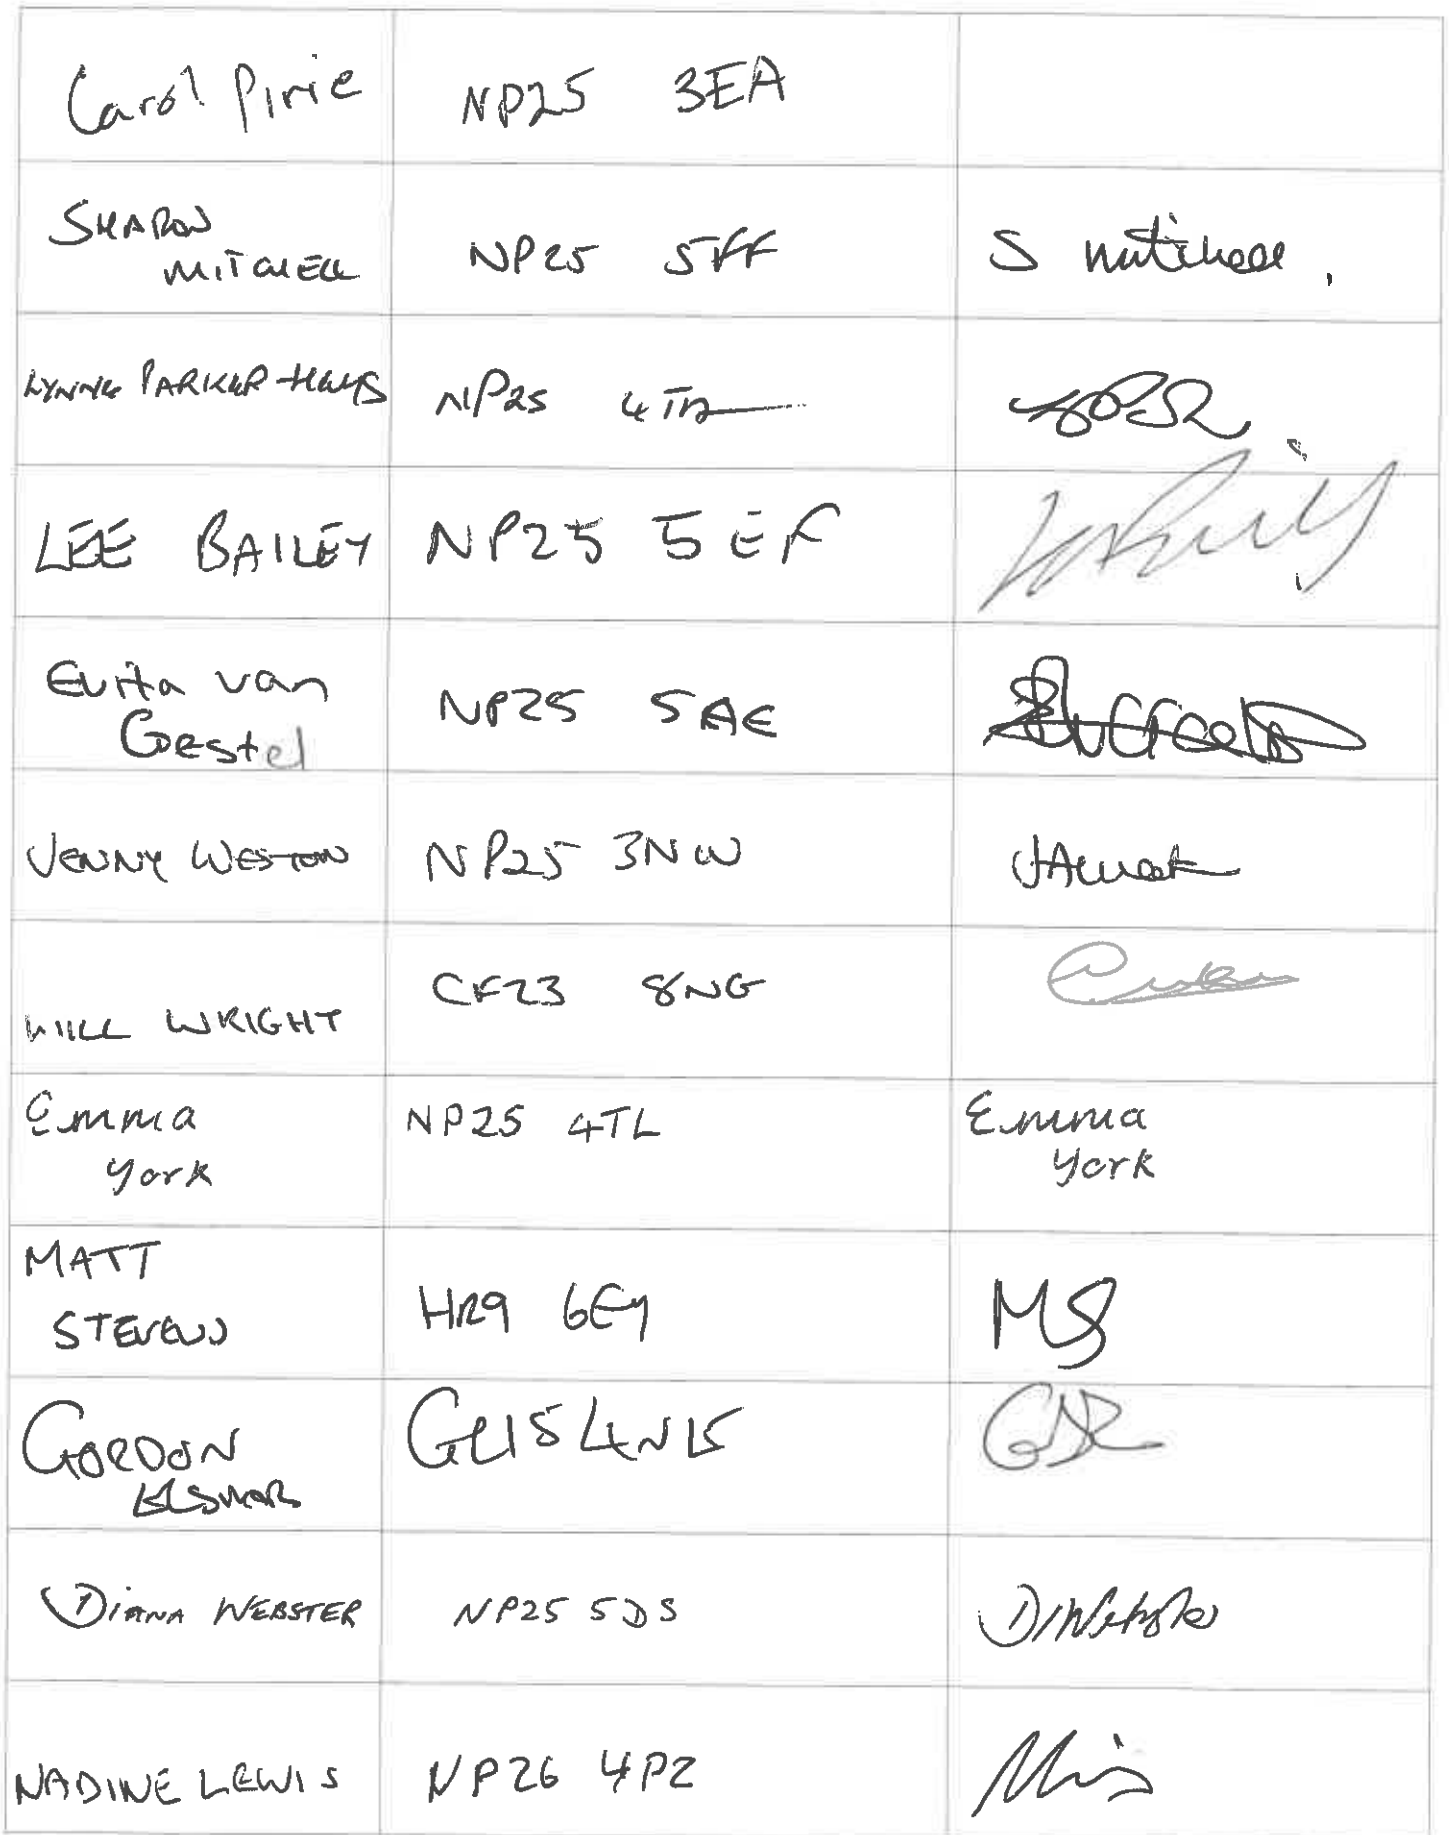 Carol Pirie NP25 3EA
SHARON
MITCHELL NP25 5FF S Mitchell.
LYNNE PARKER-HAYS NP25
LEE BAILEY NP25 5EF
Evita van
Gestel NP25 5AE
JENNY WESTON NP25 3NW
CF23 8NG
WILL WRIGHT
Emma NP25 4TL Emma
York York
MATT
STEVENS HR9 6EY MS
GORDON GL15
DIANA WEBSTER NP25 5DS
NADINE LEWIS NP26 4PZ